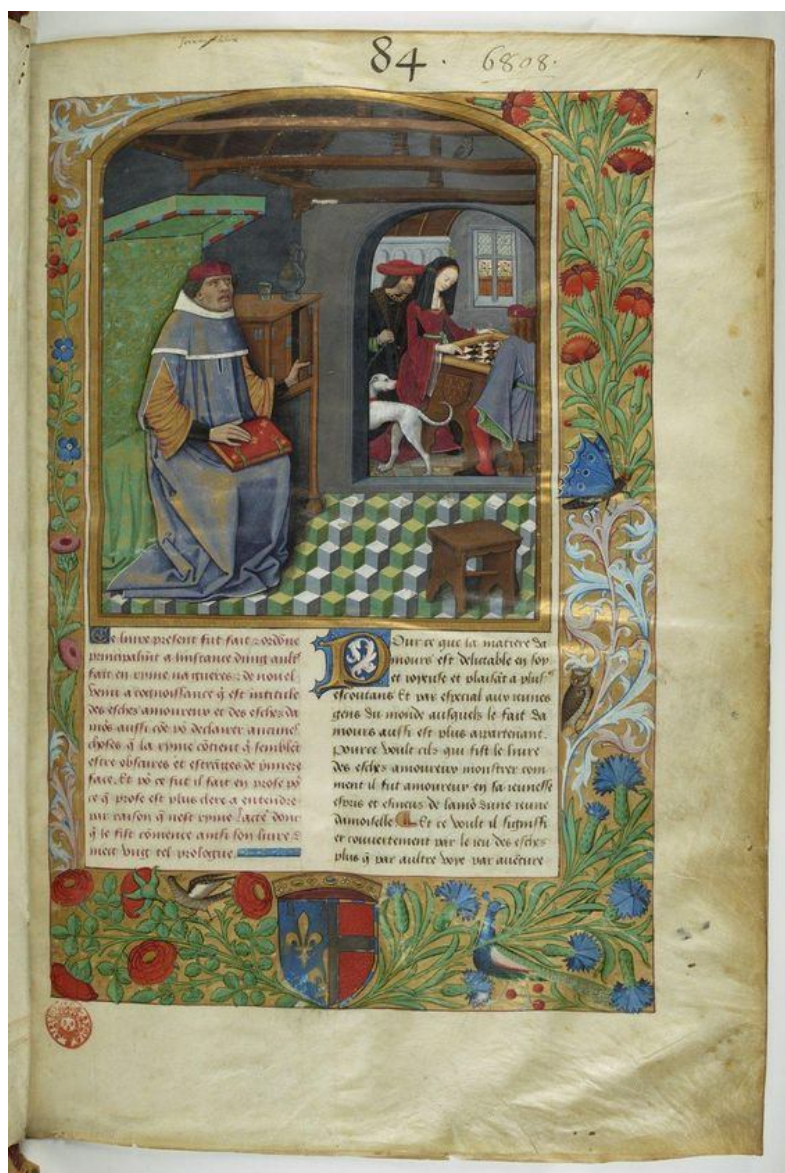 84 · 6808 ·
1
Ce livre present fut fait & ordõne
principalmt a linstance dung aultˢ
fait en ryme na gueres : & de nouvel
venu a cognoissance q̃ est intitule
des esches amoureux et des esches da
mõs aussi cõe põ declarer aucunes
choses q̃ la ryme cõtient q̃ semblẽt
estre obscures et estrãges de prime
face. Et põ ce fut il fait en prose põ
ce q̃ prose est plus clere a entendre
par raison q̃ nest ryme. Lacteˢ donc
q̃ le fist cõmence ainsi son livre &
mect vng tel prologue.
Pour ce que la matiere da
mours est delictable en soy
et ioyeuse et plaisãt a plusˢ
escoutans Et par especial aux ieunes
gens du monde ausquels le fait da
mours aussi est plus appartenant.
Pource voult cilz qui fist le livre
des esches amoureux monstrer com
ment il fut amoureux en sa ieunesse
espris et esmeus de lamõ dune ieune
damoiselle Et ce voult il signiffi
er couvertement par le ieu des esches
plus q̃ par aultre voye par avẽture